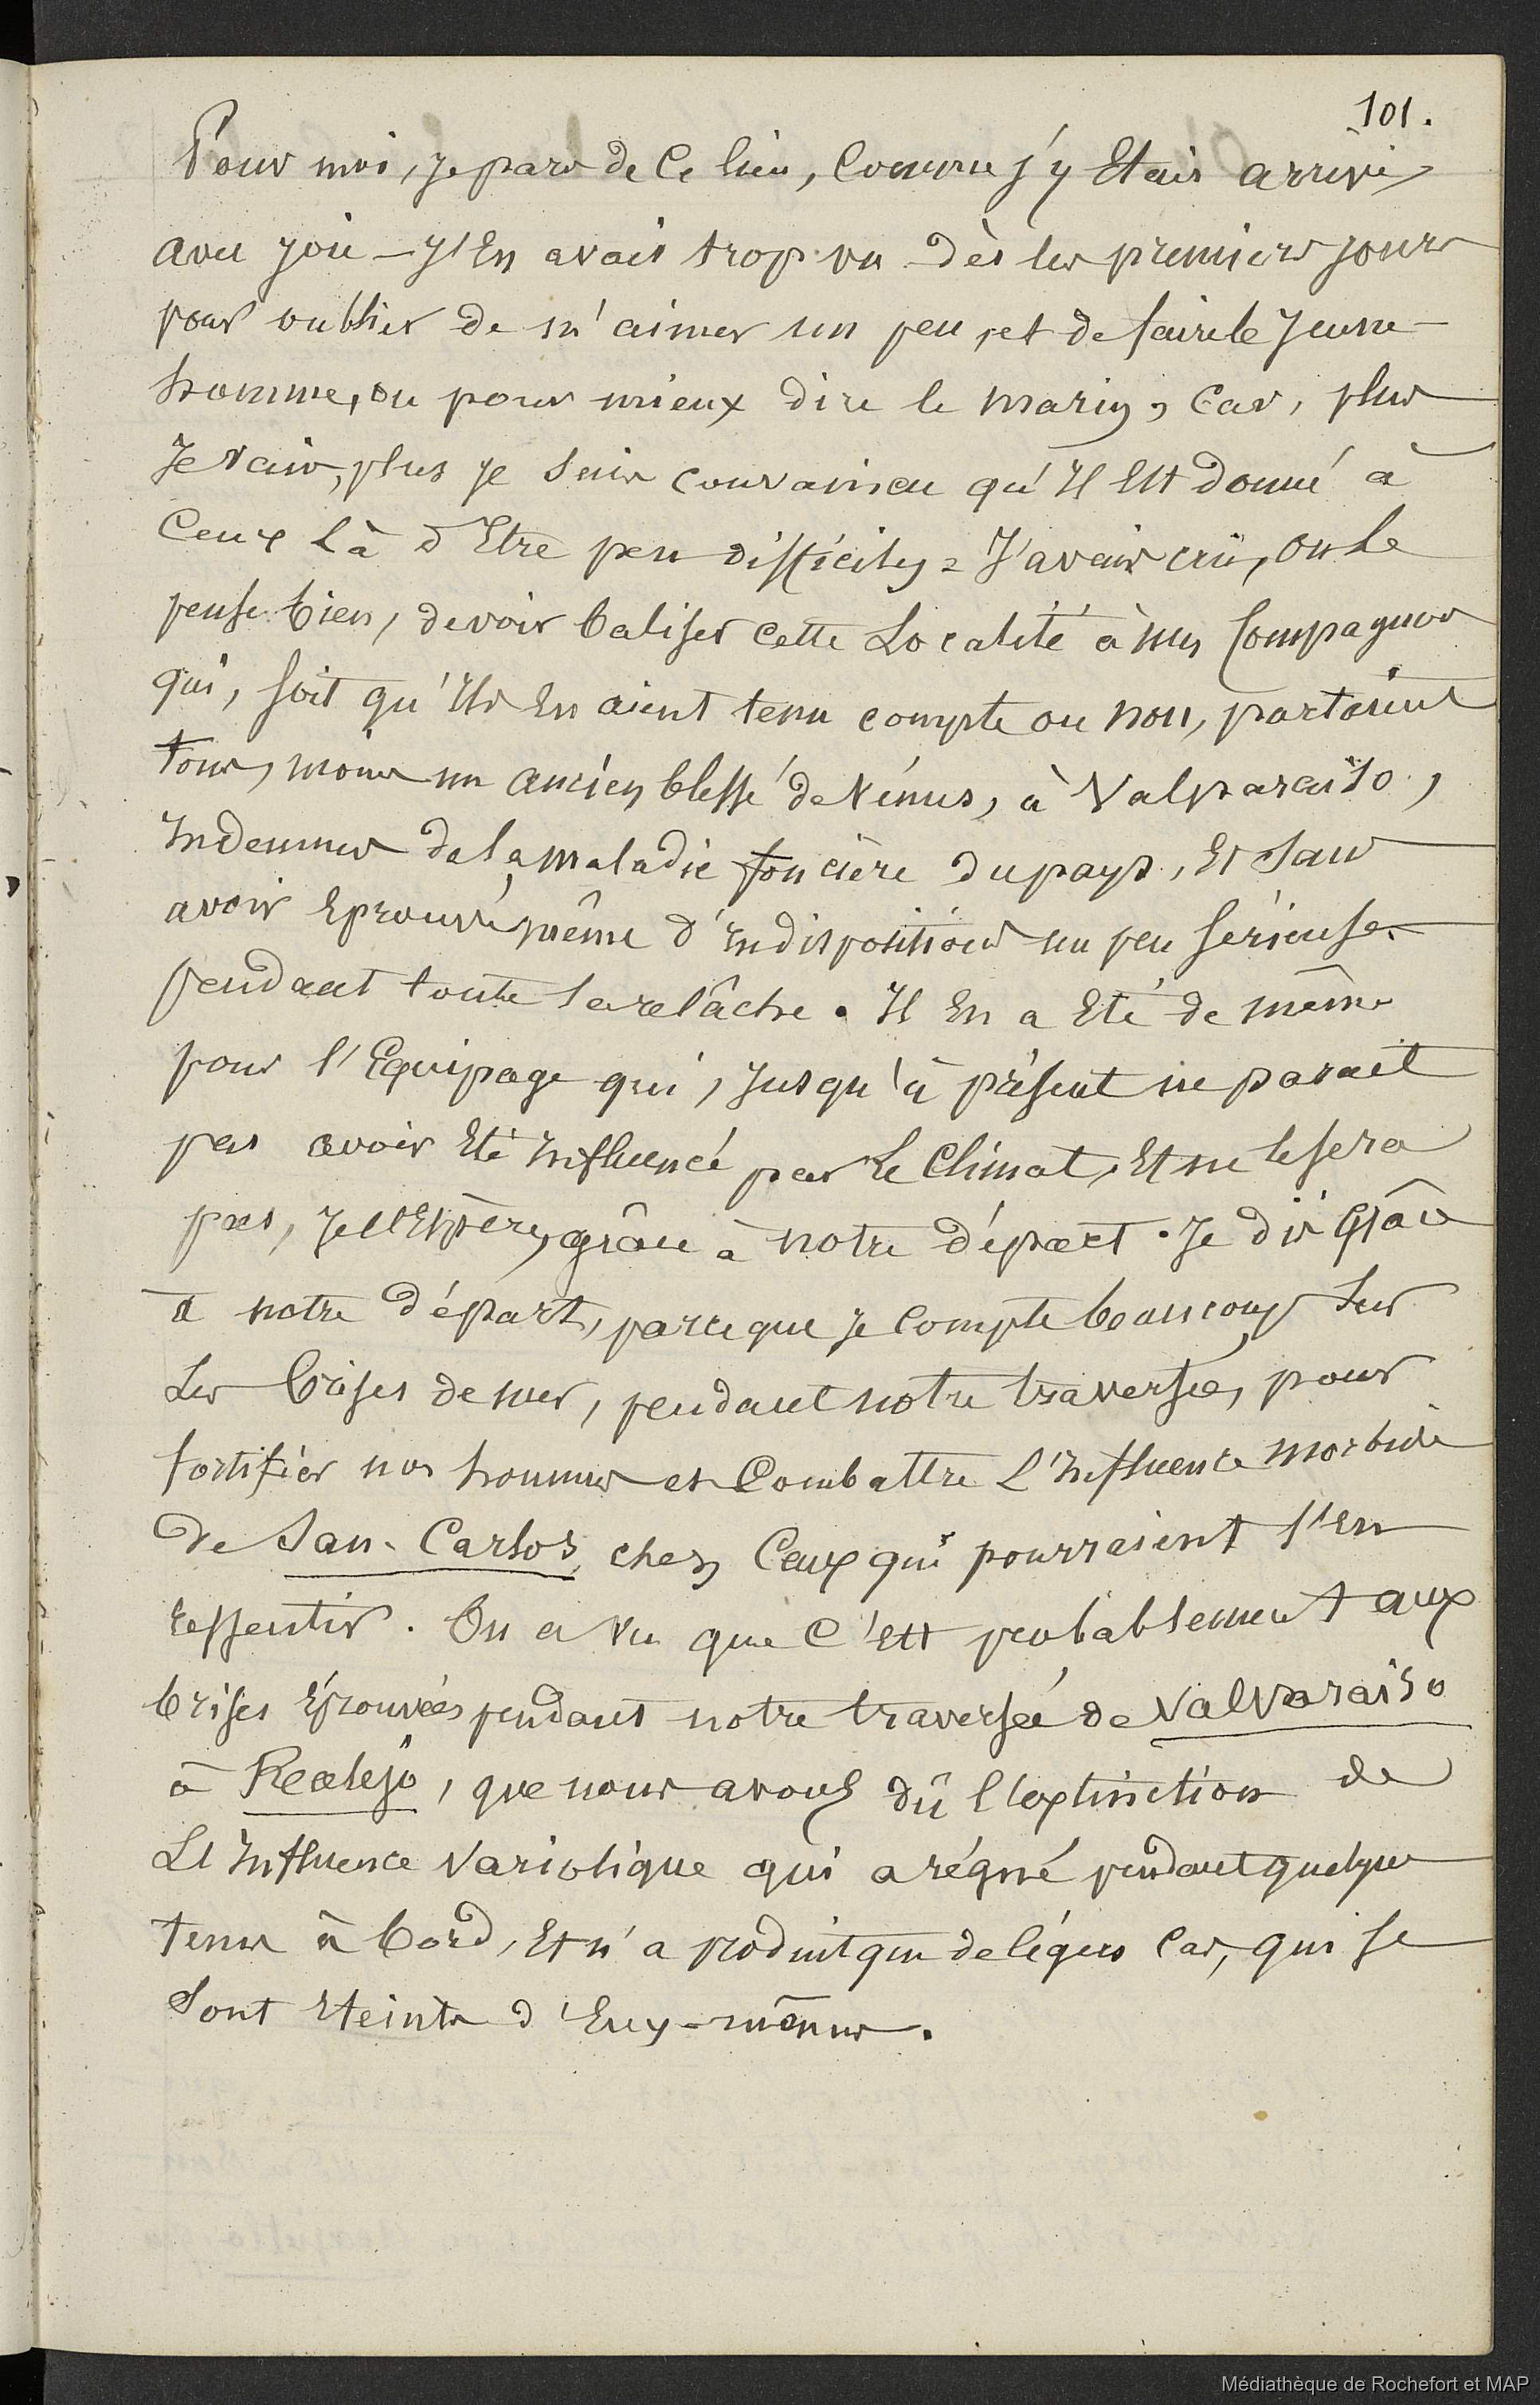 101.
Pour moi, je pars de ce lieu, comme j'y Etais arrivé,
avec joie – J'En avais trop vu dès les premiers jours
pour oublier de m'aimer un peu, et de faire le jeune
homme, ou pour mieux dire le marin, car, plus
Je vais, plus je suis convaincu qu'Il Est donné à
Ceux là d'Etre peu difficiles = J'avais crû, on le
pense bien, devoir baliser cette Localité à mes Compagnons
qui, soit qu'Ils En aient tenu compte ou non, partaient
tous, moins un ancien blessé de Vénus, à Valparaiso,
Indemnes de la maladie foncière du pays, Et sans
avoir Eprouvé même d'Indispositions un peu sérieuses
pendant toute la relâche. Il En a Eté de même
pour l'Equipage qui, jusqu'à présent ne parait
pas avoir Eté Influencé par le Climat, Et ne le sera
pas, Je l'Espère, grâce à notre départ. Je dis Grâce
à notre départ, parceque je compte beaucoup sur
Les brises de mer, pendant notre traversée, pour
fortifier nos hommes et Combattre L'Influence morbide
de San-Carlos, chez Ceux qui pourraient s'En
ressentir. On a vu que C'Est probablement aux
brises Eprouvées pendant notre traversée de Valparaiso
à Realejo, que nous avons dû l'extinction de
L'Influence Variolique qui a régné pendant quelque
tems à bord, Et n'a produit que de légers cas, qui se
sont Eteints d'Eux-mêmes.
Médiathèque de Rochefort et MAP